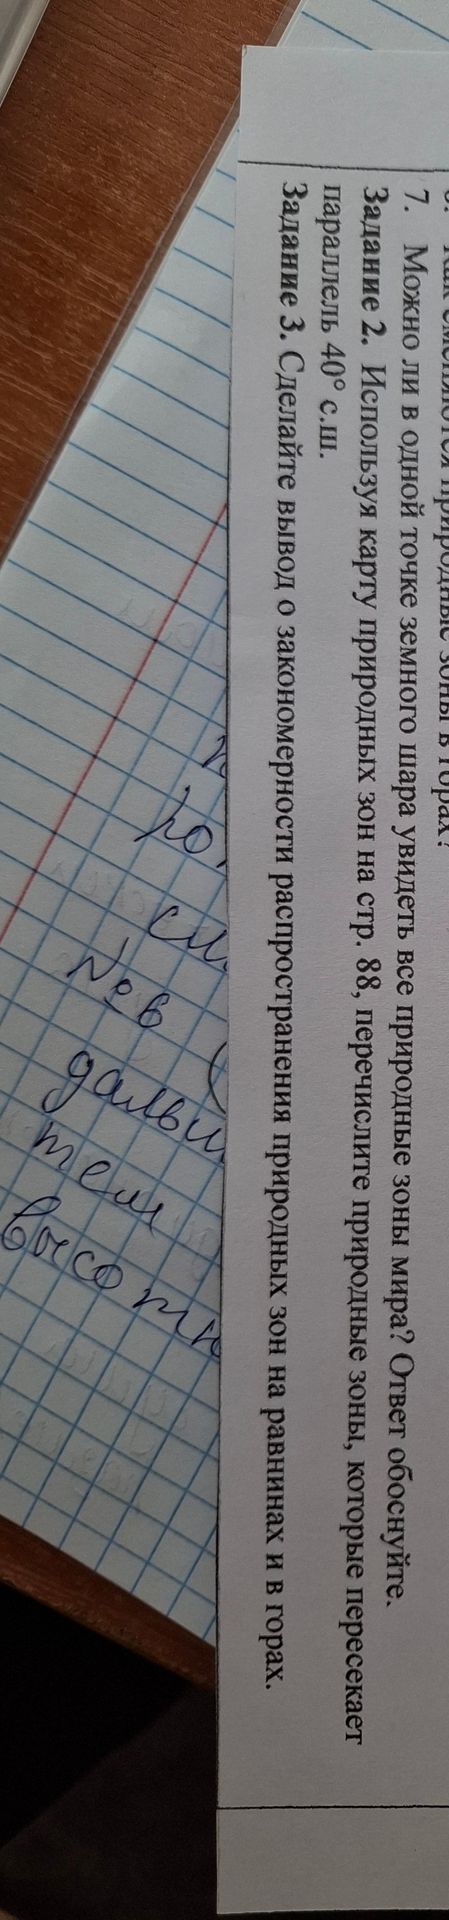 Как сменяются природные зоны в горах?
7. Можно ли в одной точке земного шара увидеть все природные зоны мира? Ответ обоснуйте.
Задание 2. Используя карту природных зон на стр. 88, перечислите природные зоны, которые пересекает
параллель 40° с.ш.
Задание 3. Сделайте вывод о закономерности распространения природных зон на равнинах и в горах.
№6
тем